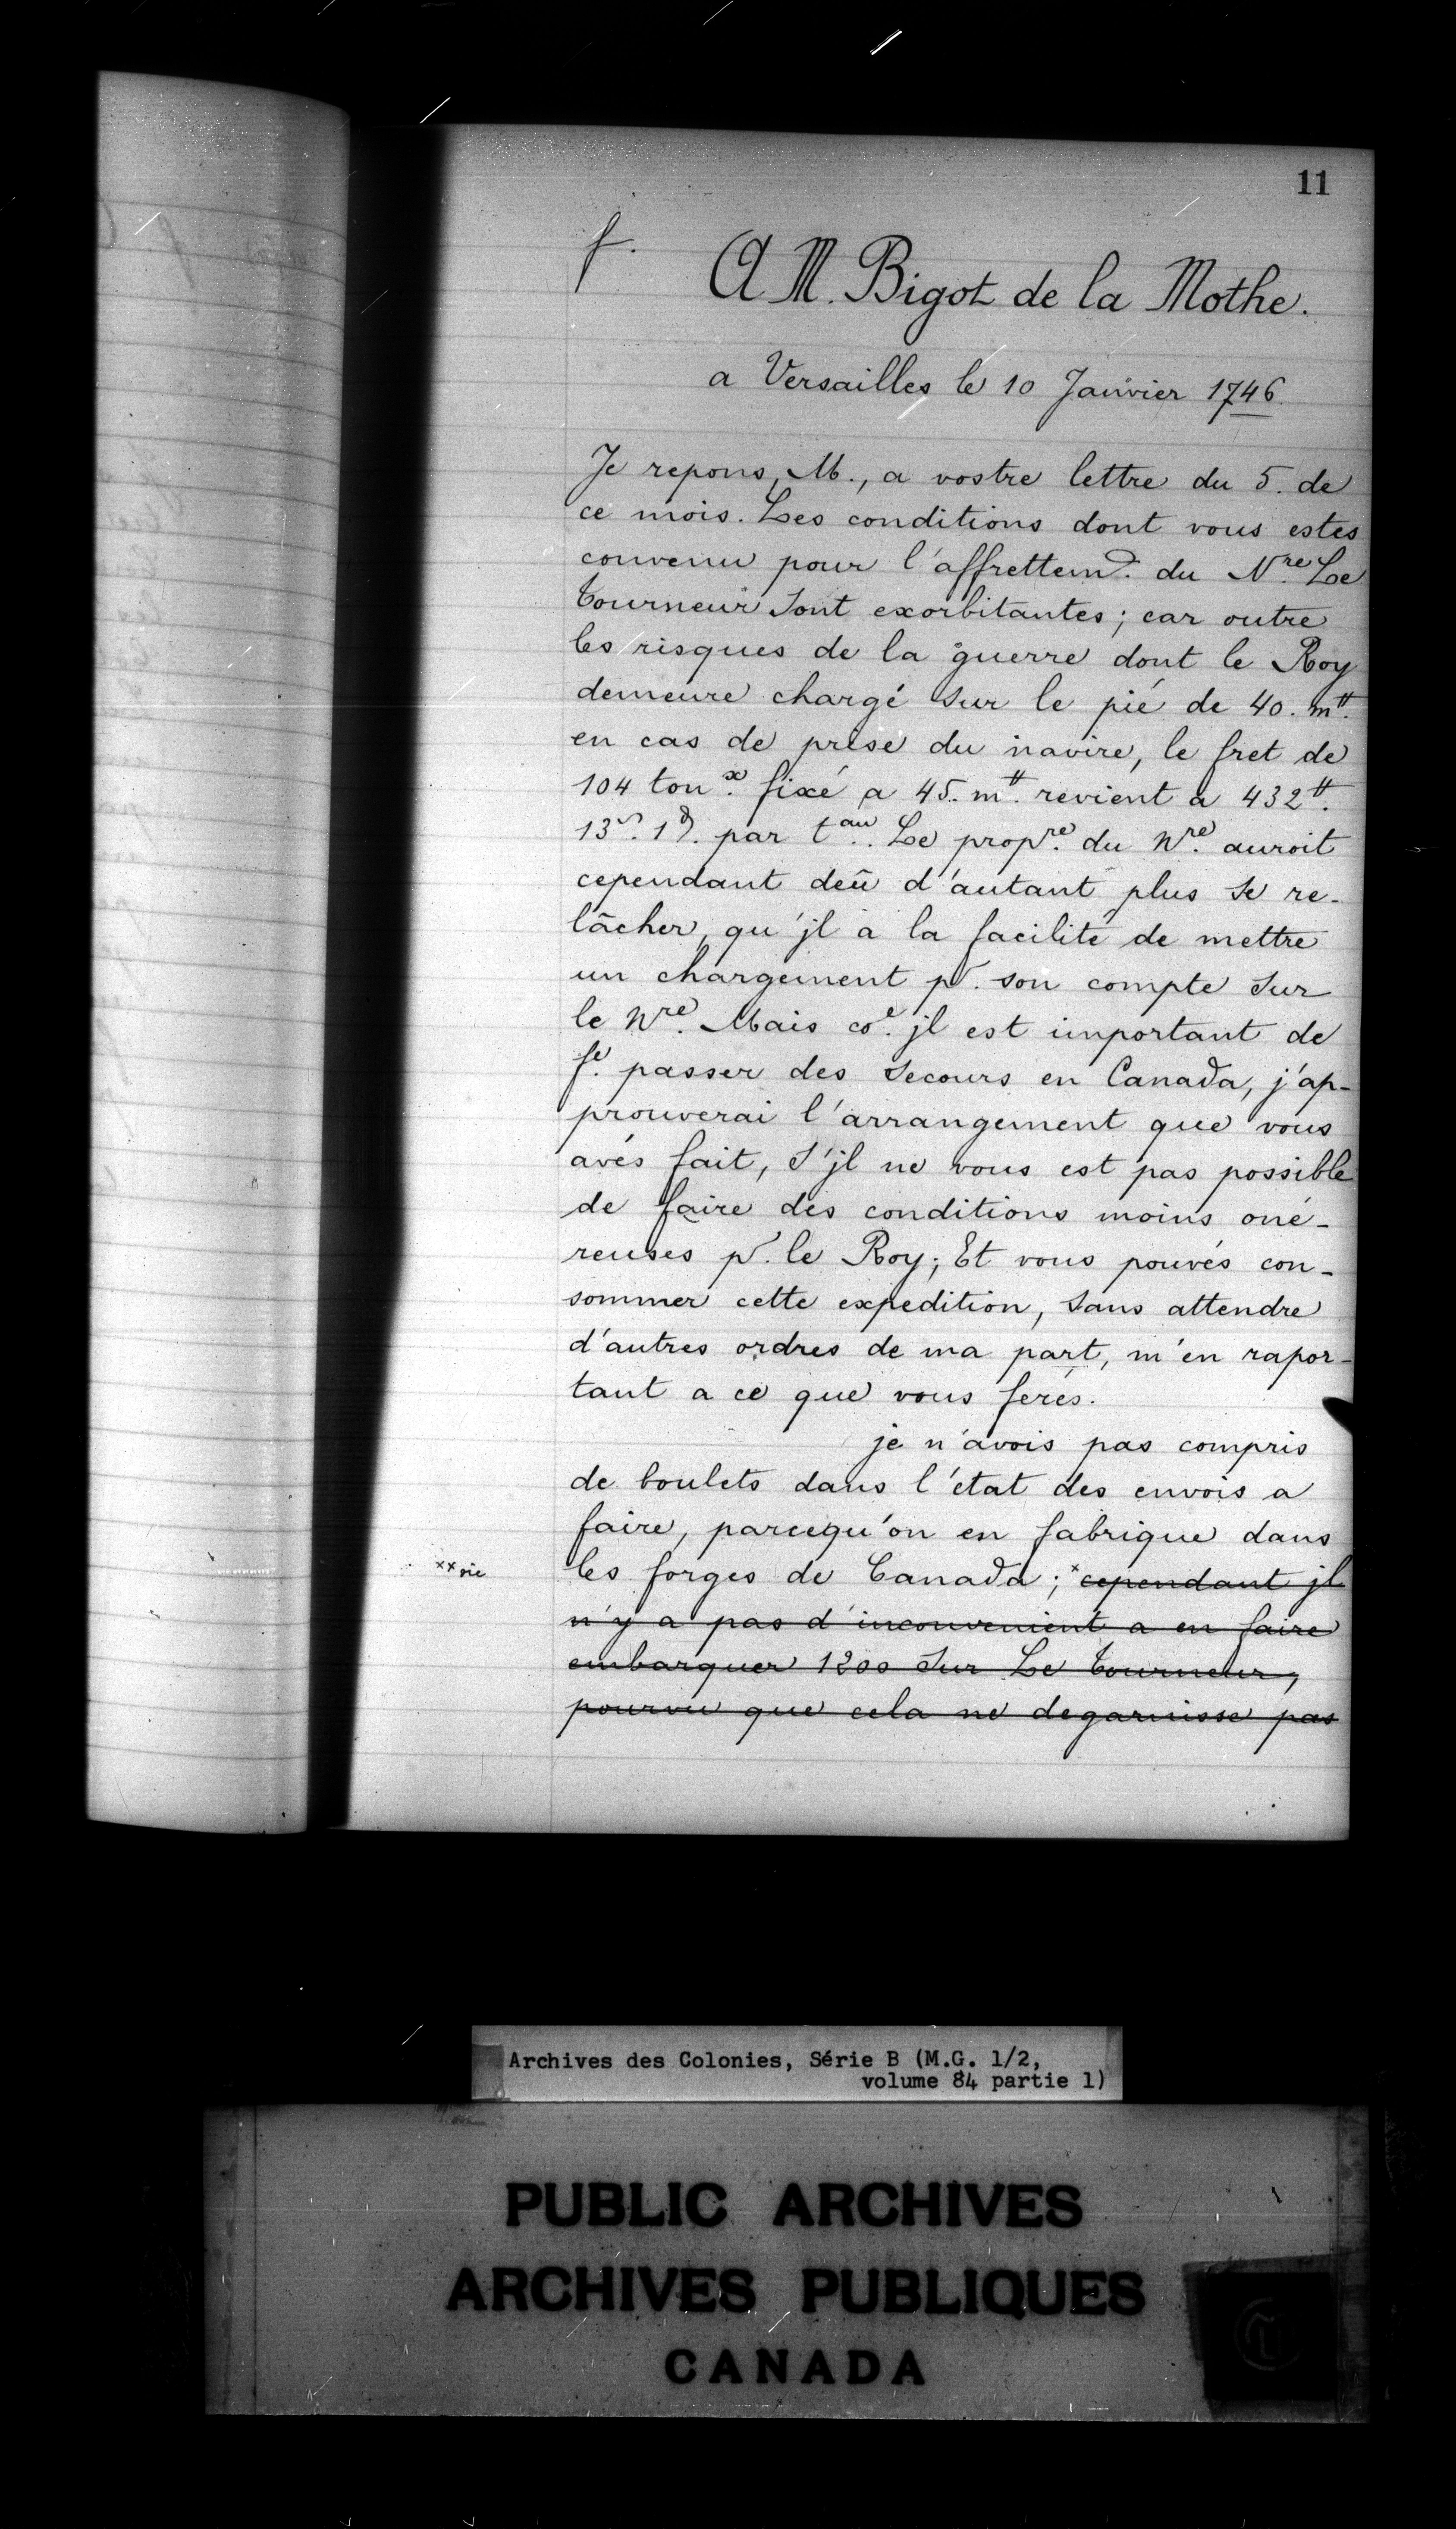 11
f.
A M. Bigot de la Mothe.
a Versailles le 10 Janvier 1746.
Je repons, M., a vostre lettre du 5. de
ce mois. Les conditions dont vous estes
convenu pour l'affrettemt. du Nre. Le
Tourneur sont exorbitantes; car outre
les risques de la guerre dont le Roy
demeure chargé sur le pié de 40. m₶.
en cas de prise du navire, le fret de
104 tonx. fixé a 45. m₶. revient a 432₶.
13s. 1d. par tau. Le propre. du Nre. auroit
cependant deû d'autant plus se re-
lâcher, qu'jl a la facilité de mettre
un chargement pr. son compte sur
le Nre. Mais coe. jl est important de
fe. passer des secours en Canada, j'ap-
prouverai l'arrangement que vous
avés fait, s'jl ne vous est pas possible
de faire des conditions moins oné-
reuses pr. le Roy; Et vous pouvés con-
sommer cette expedition, sans attendre
d'autres ordres de ma part, m'en rapor-
tant a ce que vous ferés.
je n'avois pas compris
de boulets dans l'état des envois a
faire, parcequ'on en fabrique dans
xx sic
les forges de Canada; x cependant jl
n'y a pas d'inconvenient a en faire
embarquer 1200 sur Le Tourneur,
pourvu que cela ne degarnisse pas
Archives des Colonies, Série B (M.G. 1/2,
volume 84 partie 1)
PUBLIC ARCHIVES
ARCHIVES PUBLIQUES
CANADA